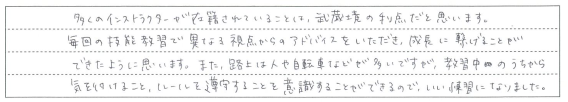 多くのインストラクターが在籍されていることは、武蔵境の利点だと思います。
毎回の技能教習で異なる視点からのアドバイスをいただき、成長に繋げることが
できたように思います。また、路上は人や自転車などが多いですが、教習中のうちから
気を付けること、ルールを遵守することを意識することができるので、いい練習になりました。